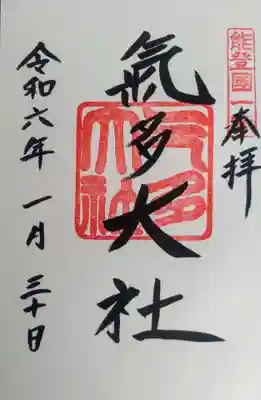 能登國一
奉拝
氣多大社
氣多大社
令和六年一月三十日